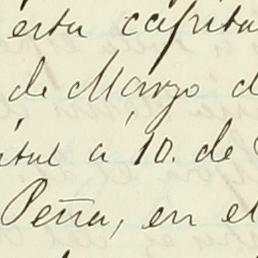 esta capital
de Marzo d
ital a 10. de
Peña, en el